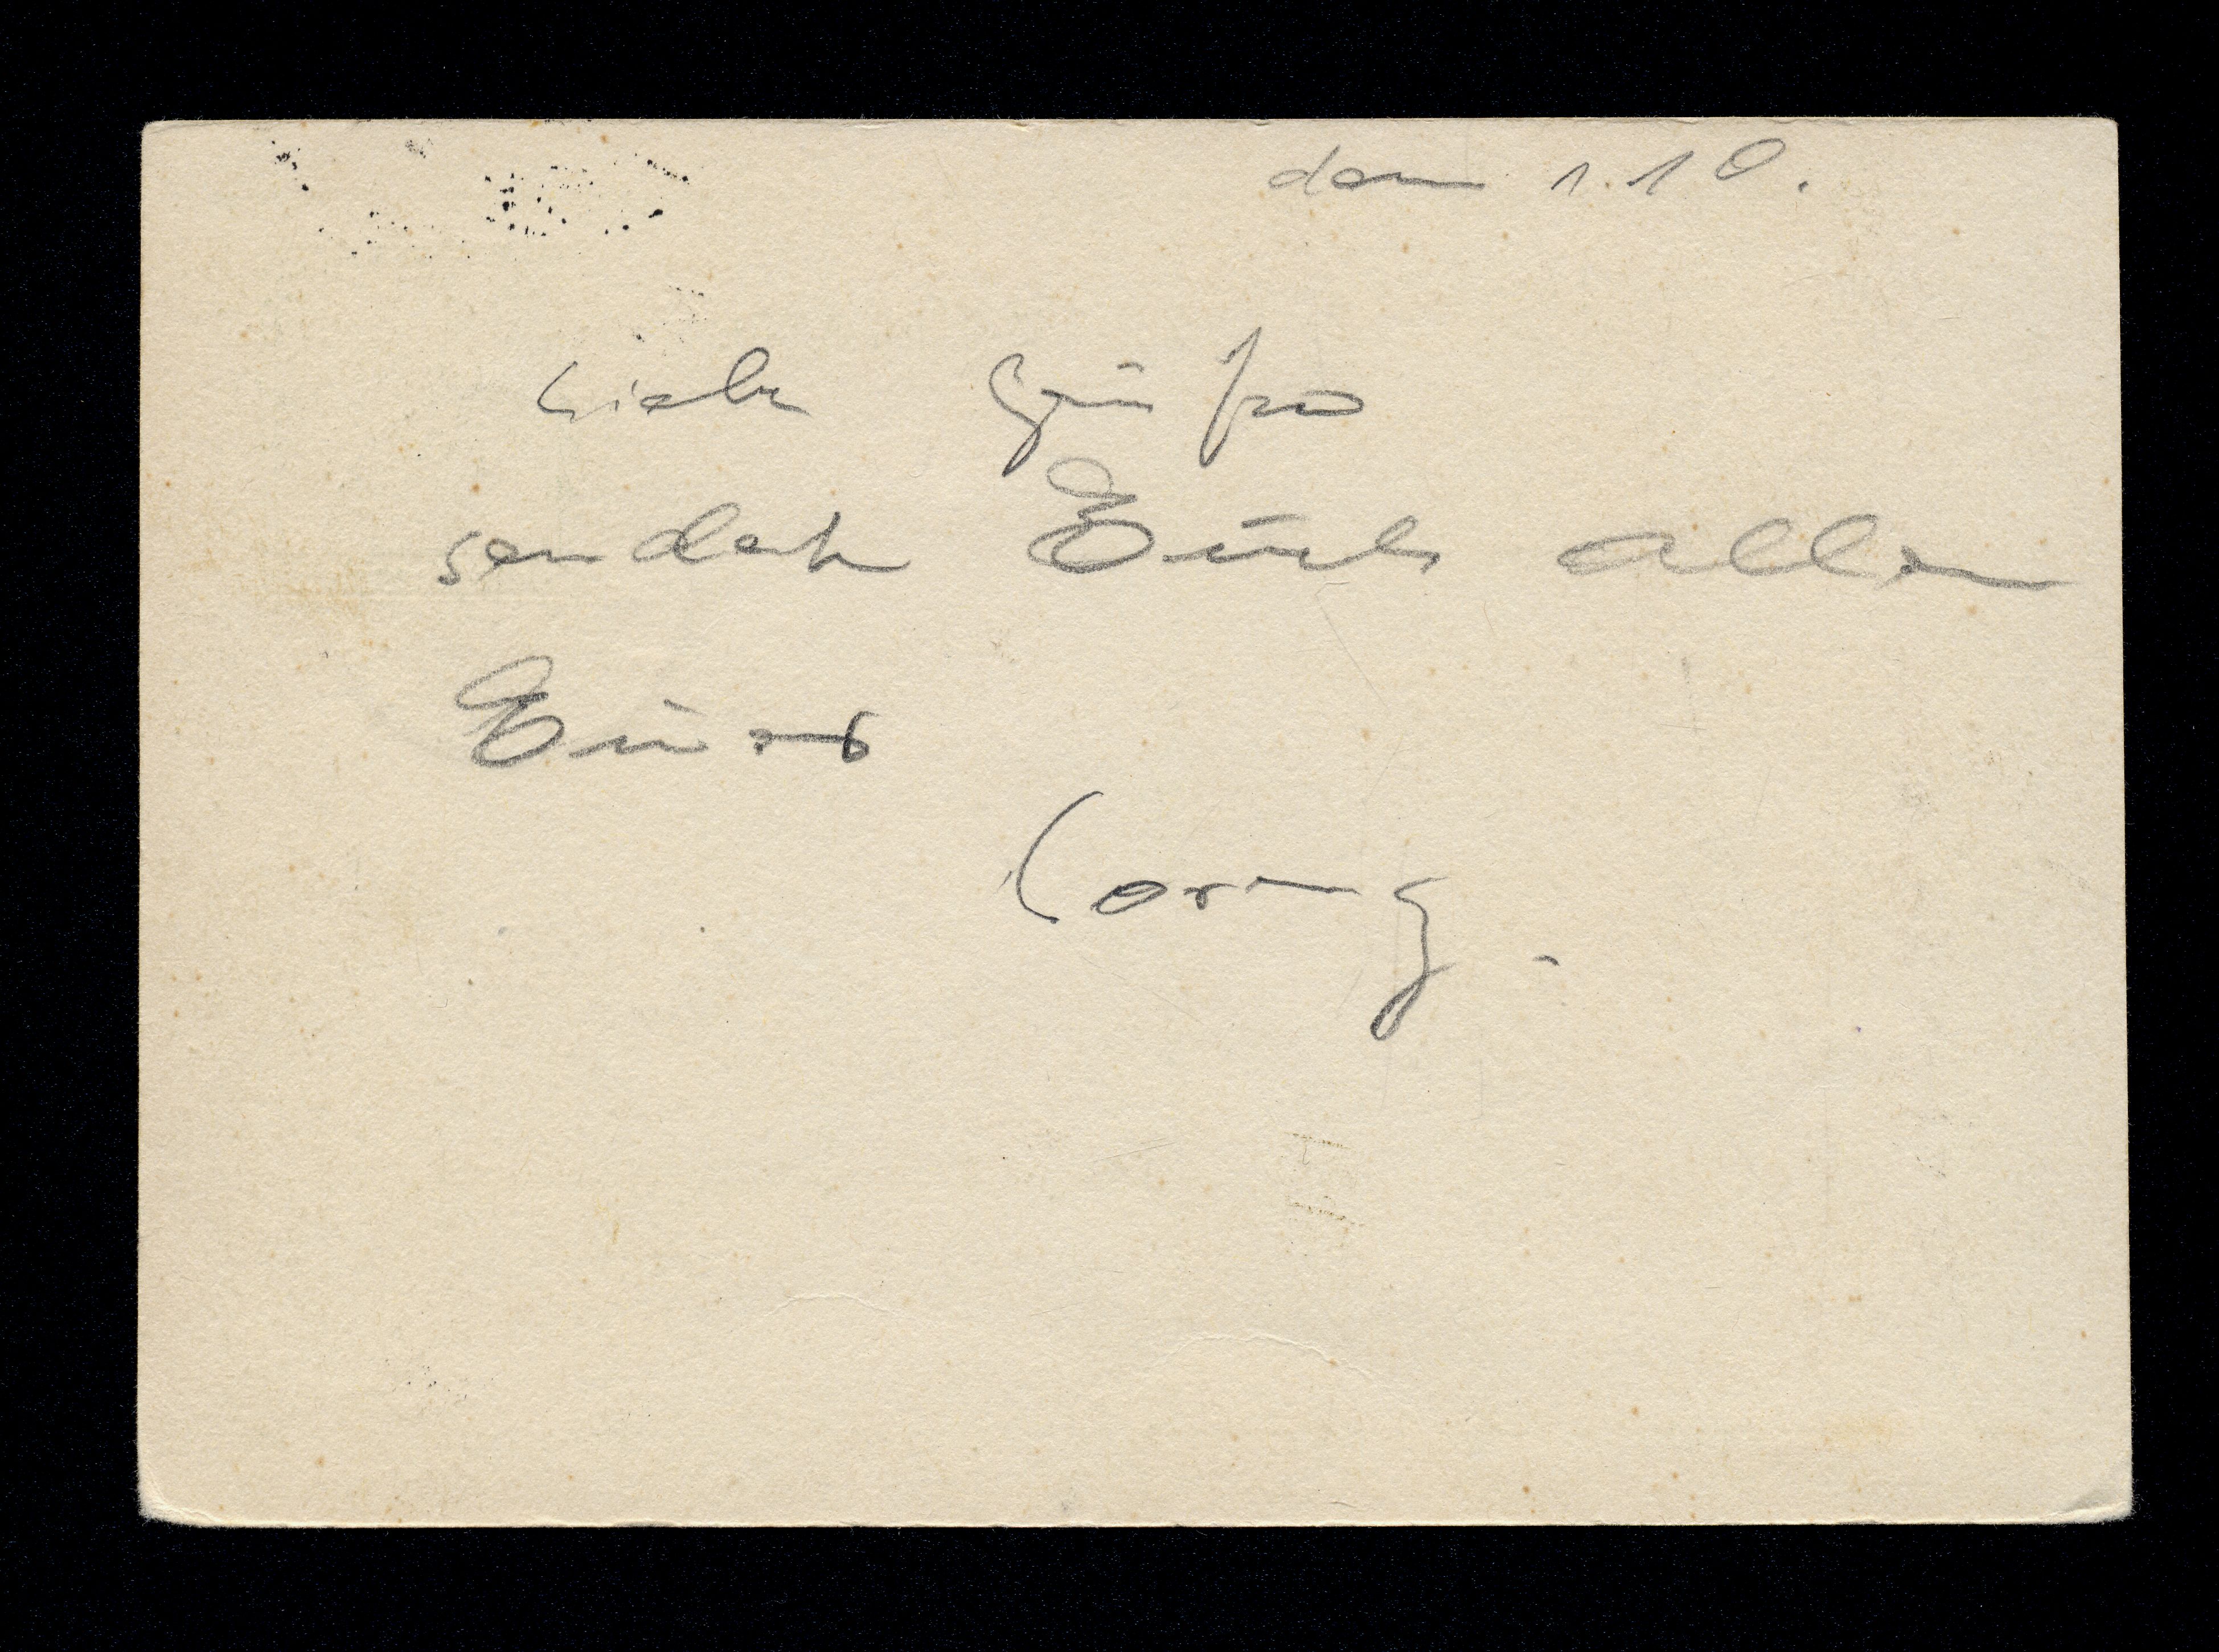 den 1.10.
Liebe Grüße
sendet Euch allen
Euer